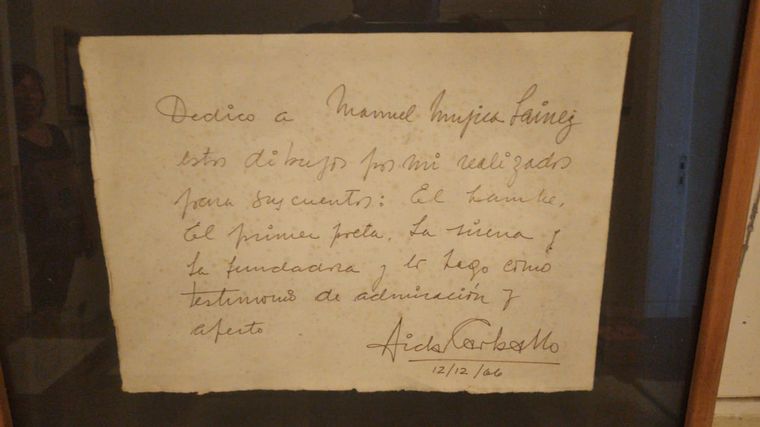 Dedico a Manuel Mujica Lainez
estos dibujos por mi realizados
para sus cuentos: El hambre,
El primer poeta, La sirena y
La fundadora y lo hago como
testimonio de admiración y
afecto
Aida Carballo
12/12/66